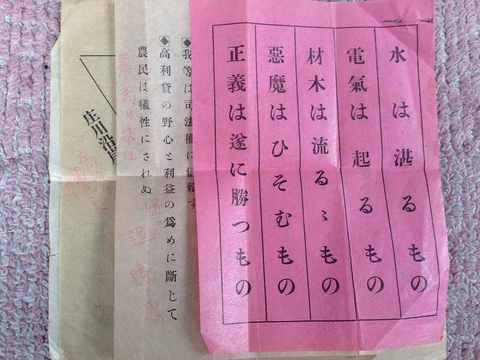 水は湛るもの
電氣は起るもの
材木は流るゝもの
惡魔はひそむもの
正義は遂に勝つもの
◆我等は司法權に
◆高利貸の野心と利益の爲めに斷じて
農民は犧牲にされぬ
庄川沿